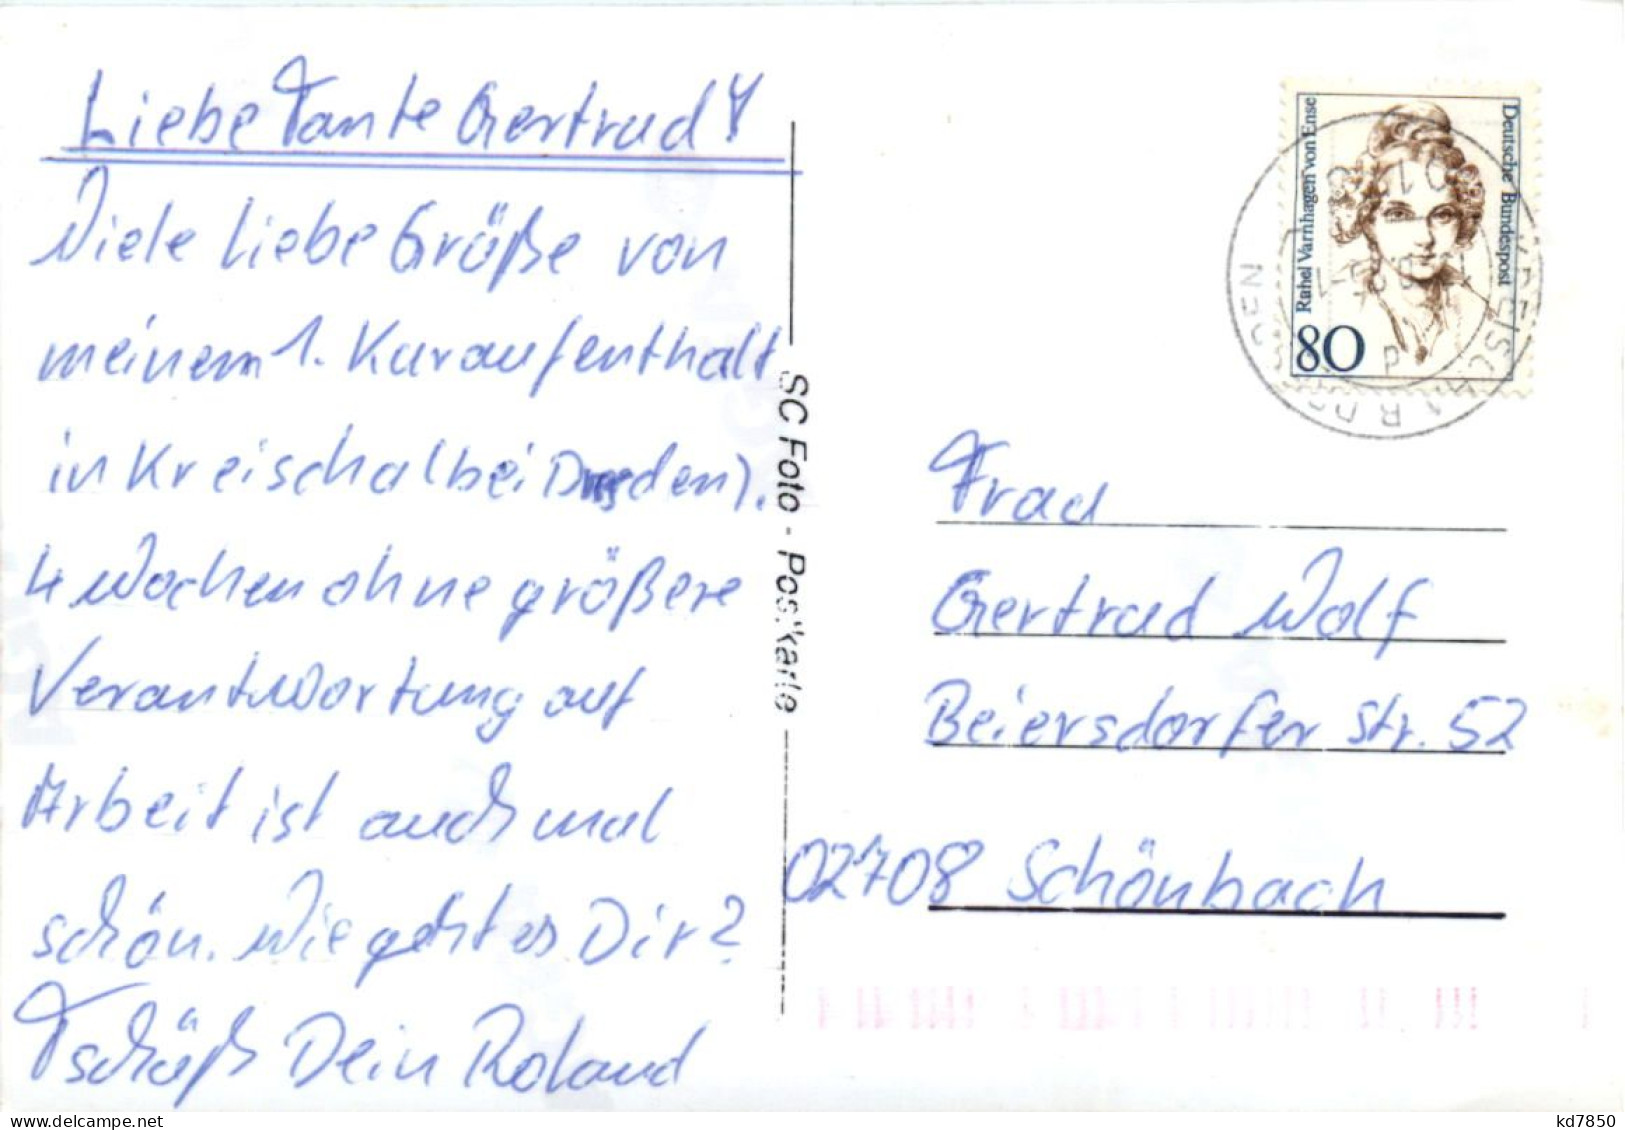 Liebe Tante Gertrud!
Viele liebe Grüße von
meinem 1. Kuraufenthalt
in Kreischa (bei Dresden).
4 Wochen ohne größere
Verantwortung auf
Arbeit ist auch mal
schön. Wie geht es Dir?
Tschüß Dein Roland
SC Foto - Postkarte
Deutsche Bundespost
Rahel Varnhagen von Ense
80
Frau
Gertrud Wolf
Beiersdorfer Str. 52
02708 Schönbach
delcampe.net
kd7850